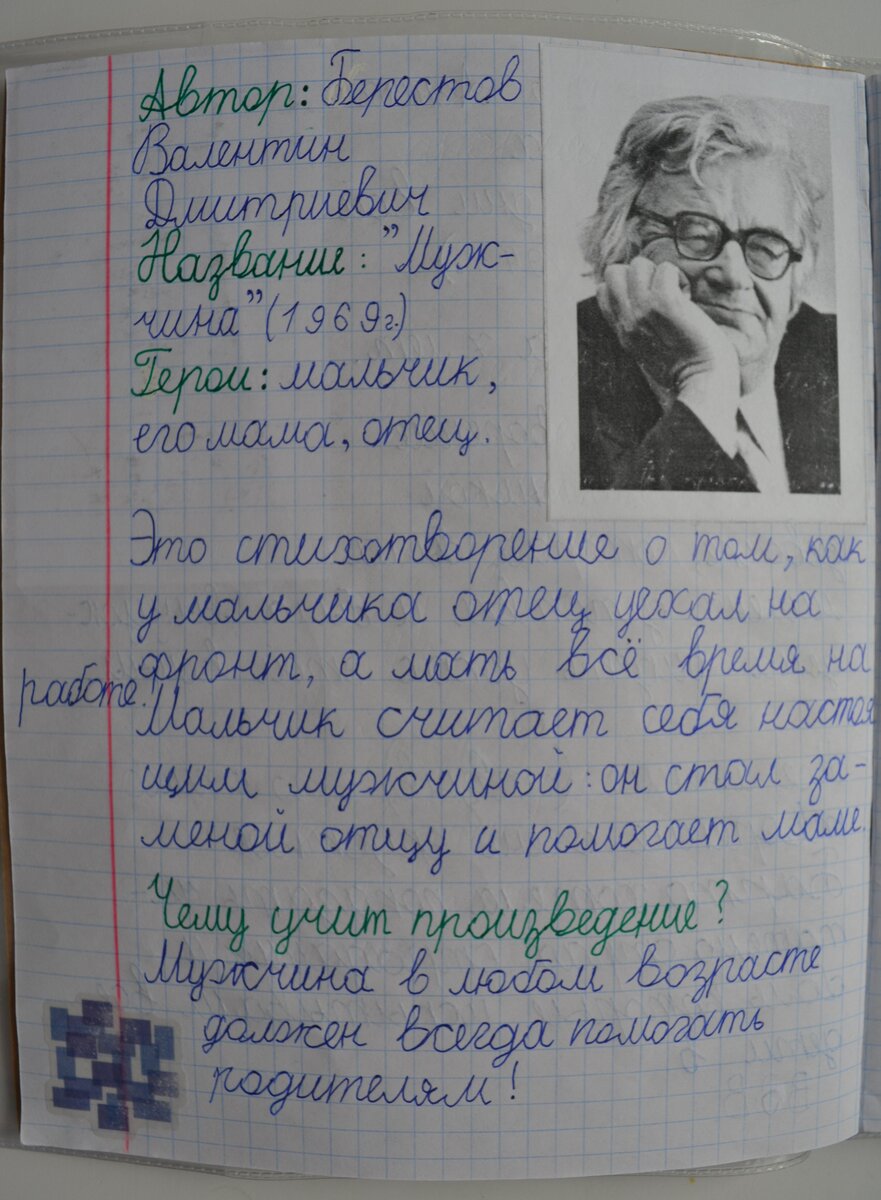 Автор: Берестов
Валентин
Дмитриевич
Название: "Муж-
чина" (1969г.)
Герои: мальчик,
его мама, отец.
Это стихотворение о том, как
у мальчика отец уехал на
фронт, а мать всё время на
работе.
Мальчик считает себя настоя
щим мужчиной: он стал за-
меной отцу и помогает маме.
Чему учит произведение?
Мужчина в любом возрасте
должен всегда помогать
родителям!